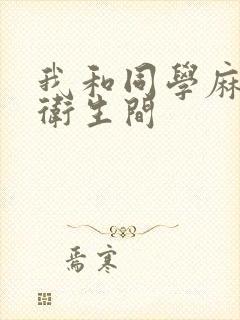 我和同學麻
衛生間
焉寒